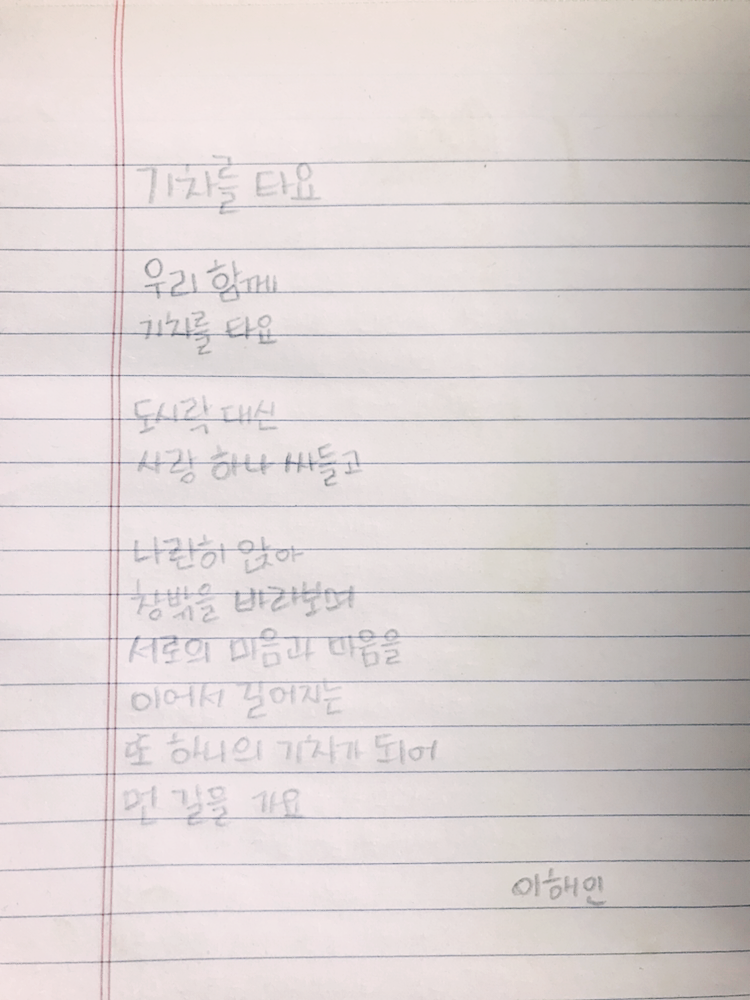 기차를 타요
우리 함께
기차를 타요
도시락 대신
사랑 하나 싸들고
나란히 앉아
창밖을 바라보며
서로의 마음과 마음을
이어서 길어지는
또 하나의 기차가 되어
먼 길을 가요
이해인